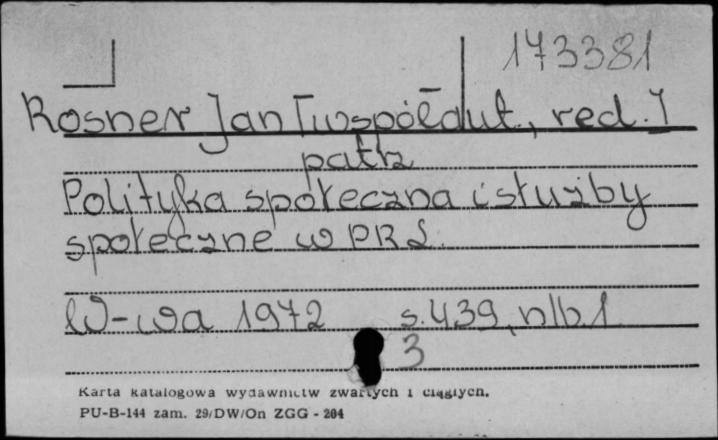 173381
Rosner Jan [współaut., red.]
patrz
Polityka społeczna i służby
społeczne w PRL.
W-wa 1972 s. 439, nlb. 1
3
Karta katalogowa wydawnictw zwartych i ciągłych.
PU-B-144 zam. 29/DW/On ZGG - 204